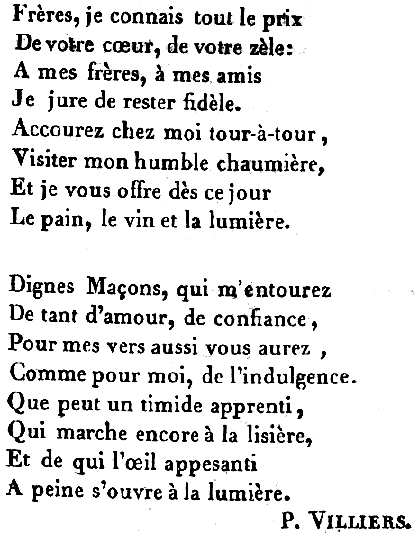 Frères, je connais tout le prix
De votre cœur, de votre zèle:
A mes frères, à mes amis
Je jure de rester fidèle.
Accourez chez moi tour-à-tour,
Visiter mon humble chaumière,
Et je vous offre dès ce jour
Le pain, le vin et la lumière.

Dignes Maçons, qui m'entourez
De tant d'amour, de confiance,
Pour mes vers aussi vous aurez,
Comme pour moi, de l'indulgence.
Que peut un timide apprenti,
Qui marche encore à la lisière,
Et de qui l'œil appesanti
A peine s'ouvre à la lumière.
P. VILLIERS.